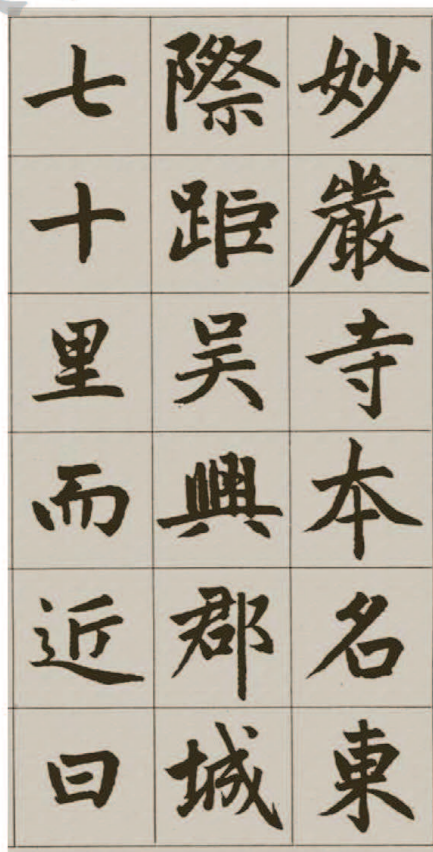 妙嚴寺本名東
際距吳興郡城
七十里而近曰